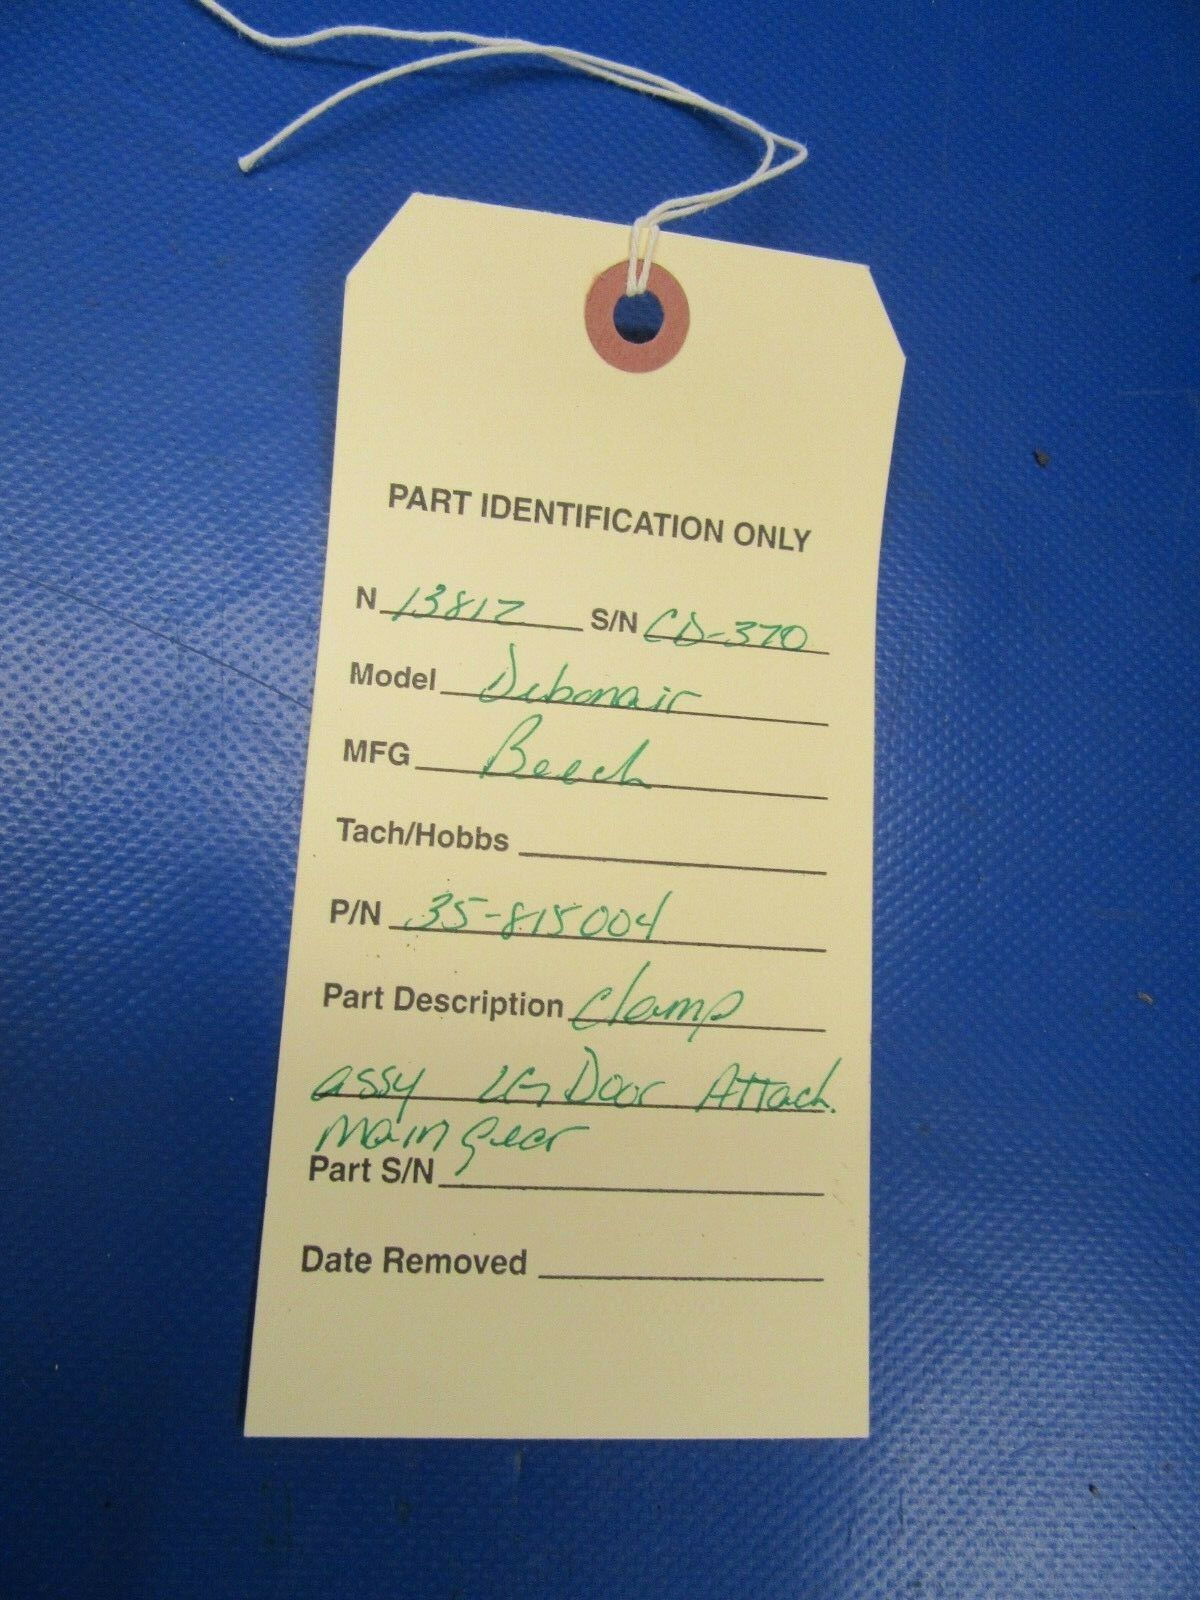 PART IDENTIFICATION ONLY
N 1381Z S/N CD-370
Model Debonair
MFG Beech
Tach/Hobbs
P/N 35-815004
Part Description Clamp
assy LG Door Attach.
main gear
Part S/N
Date Removed